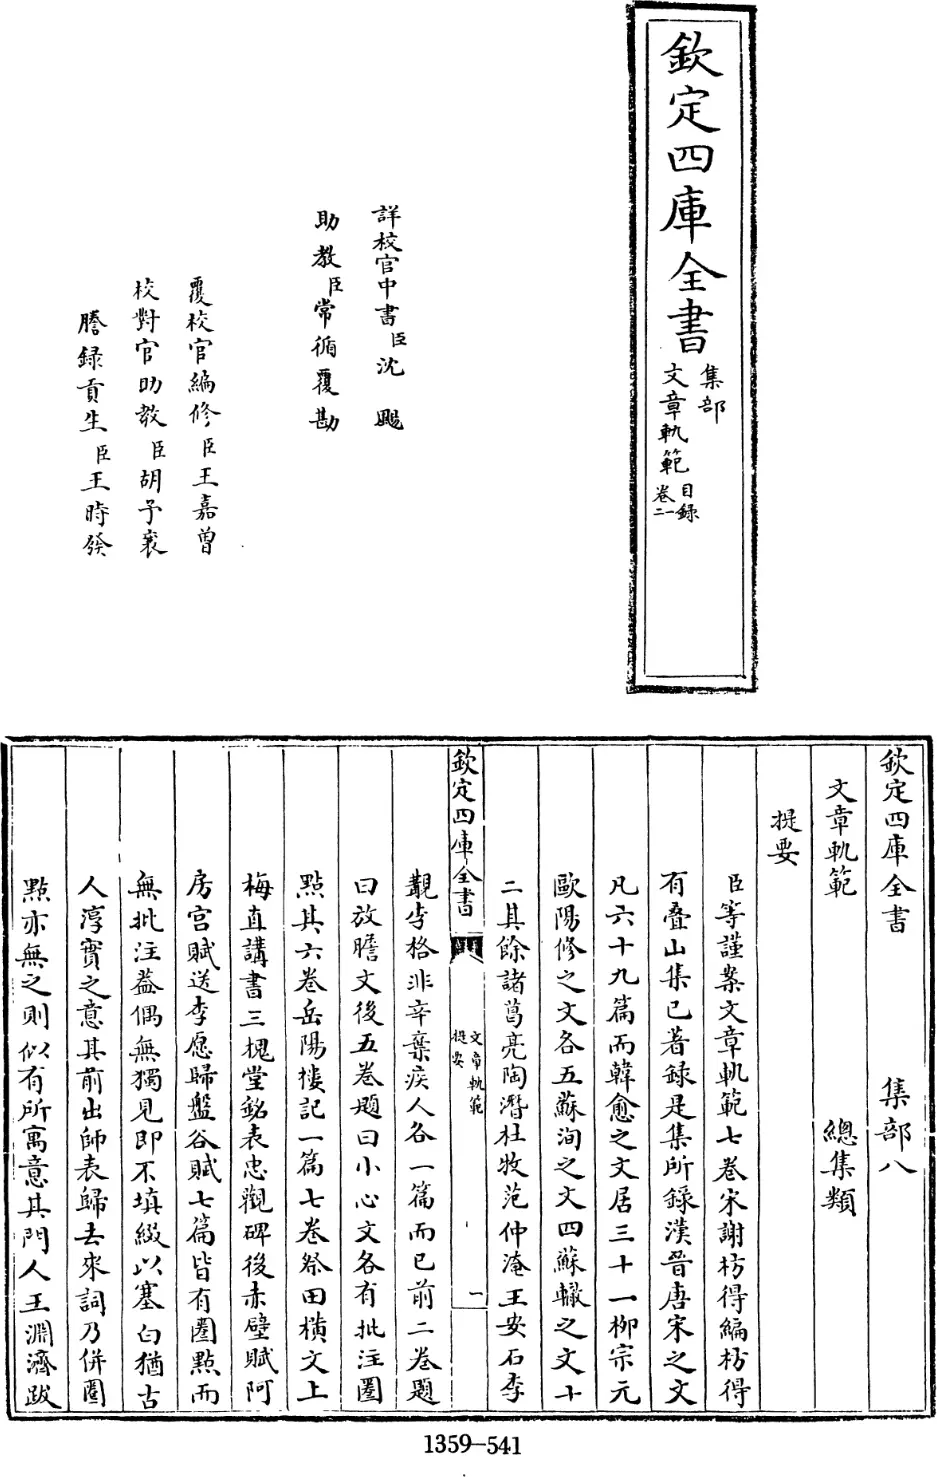 欽定四庫全書
集部
文章軌範
目録
卷二
詳校官中書臣沈颺
助教臣常循覆勘
覆校官編修臣王嘉曾
校對官助教臣胡子襄
謄録貢生臣王時發
欽定四庫全書 集部八
文章軌範 總集類
提要
臣等謹案文章軌範七卷宋謝枋得編枋得
有疊山集已著録是集所錄漢晉唐宋之文
凡六十九篇而韓愈之文居三十一柳宗元
歐陽修之文各五蘇洵之文四蘇轍之文十
二其餘諸葛亮陶潛杜牧范仲淹王安石李
欽定四庫全書
文章軌範
提要
一
覯李格非辛棄疾人各一篇而已前二卷題
曰放膽文後五卷題曰小心文各有批注圈
點其六卷岳陽樓記一篇七卷祭田橫文上
梅直講書三槐堂銘表忠觀碑後赤壁賦阿
房宮賦送李愿歸盤谷賦七篇皆有圈點而
無批注葢偶無獨見即不填綴以塞白猶古
人淳實之意其前出師表歸去來詞乃併圈
點亦無之則似有所寓意其門人王淵濟跋
1359-541